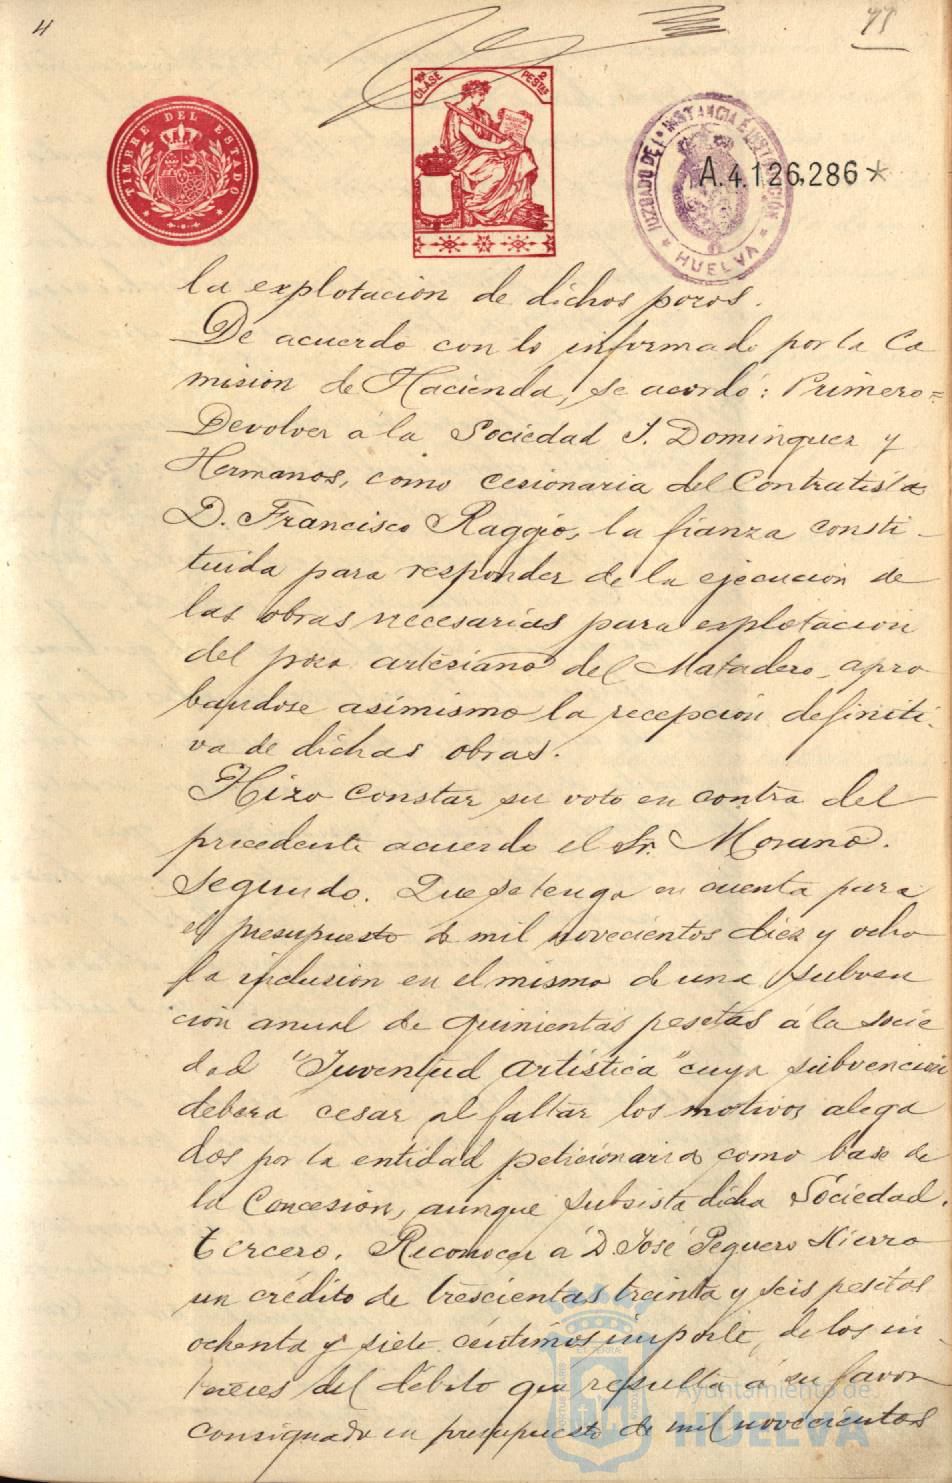 4
77
TIMBRE DEL ESTADO
10ª CLASE
2 PESTAS
JUZGADO DE 1ª INSTANCIA E INSTRUCCIÓN
* HUELVA *
A.4.126,286*
la explotacion de dichos pozos.
De acuerdo con lo informado por la Co
mision de Hacienda, se acordó: Primero=
Devolver á la Sociedad J. Dominguez y
Hermanos, como cesionaria del Contratista
D. Francisco Raggio, la fianza consti-
tuida para responder de la ejecución de
las obras necesarias para explotacion
del pozo artesiano del Matadero, apro
bandose asimismo la recepción definiti-
va de dichas obras.
Hizo constar su voto en contra del
precedente acuerdo el Sr. Morano.
Segundo. Que se tenga en cuenta para
el presupuesto de mil novecientos diez y ocho
la inclusion en el mismo de una subven
ción anual de quinientas pesetas á la socie
dad "Juventud Artística" cuya subvencion
debera cesar al faltar los motivos alega
dos por la entidad peticionaria como base de
la Concesión, aunque subsista dicha Sociedad.
Tercero. Reconocer á D. José Peguero Hierro
un crédito de trescientas treinta y seis pesetas
ochenta y siete céntimos importe de los in-
tereses del débito que resulta á su favor
consignado en presupuesto de mil novecientos
Ayuntamiento de
HUELVA